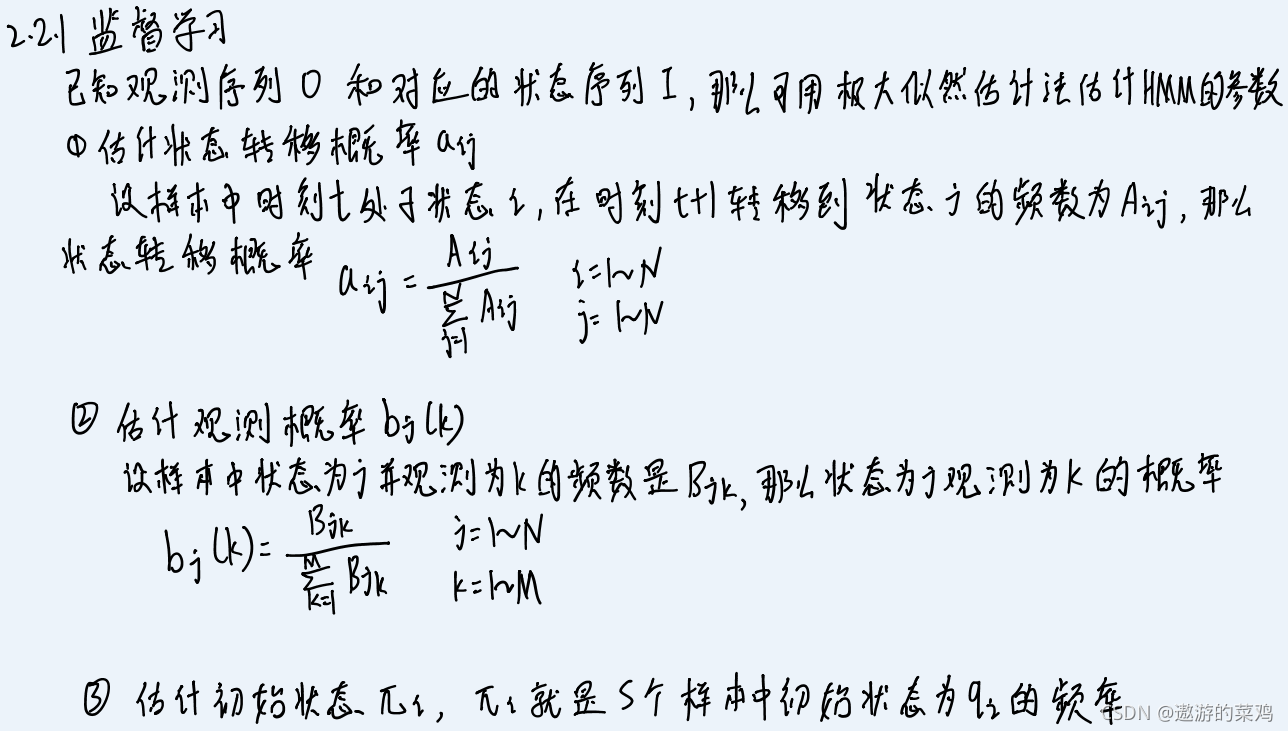 2.2.1 监督学习
已知观测序列 O 和对应的状态序列 I, 那么可用极大似然估计法估计HMM的参数
① 估计状态转移概率 aij
设样本中时刻t处于状态i, 在时刻t+1转移到状态j的频数为Aij, 那么
状态转移概率 aij = Aij / ∑_{j=1}^{N} Aij i=1~N
j=1~N
② 估计观测概率 bj(k)
设样本中状态为j并观测为k的频数是Bjk, 那么状态为j观测为k的概率
bj(k) = Bjk / ∑_{k=1}^{M} Bjk j=1~N
k=1~M
③ 估计初始状态πi, πi就是S个样本中初始状态为qi的频率
CSDN @遨游的菜鸡